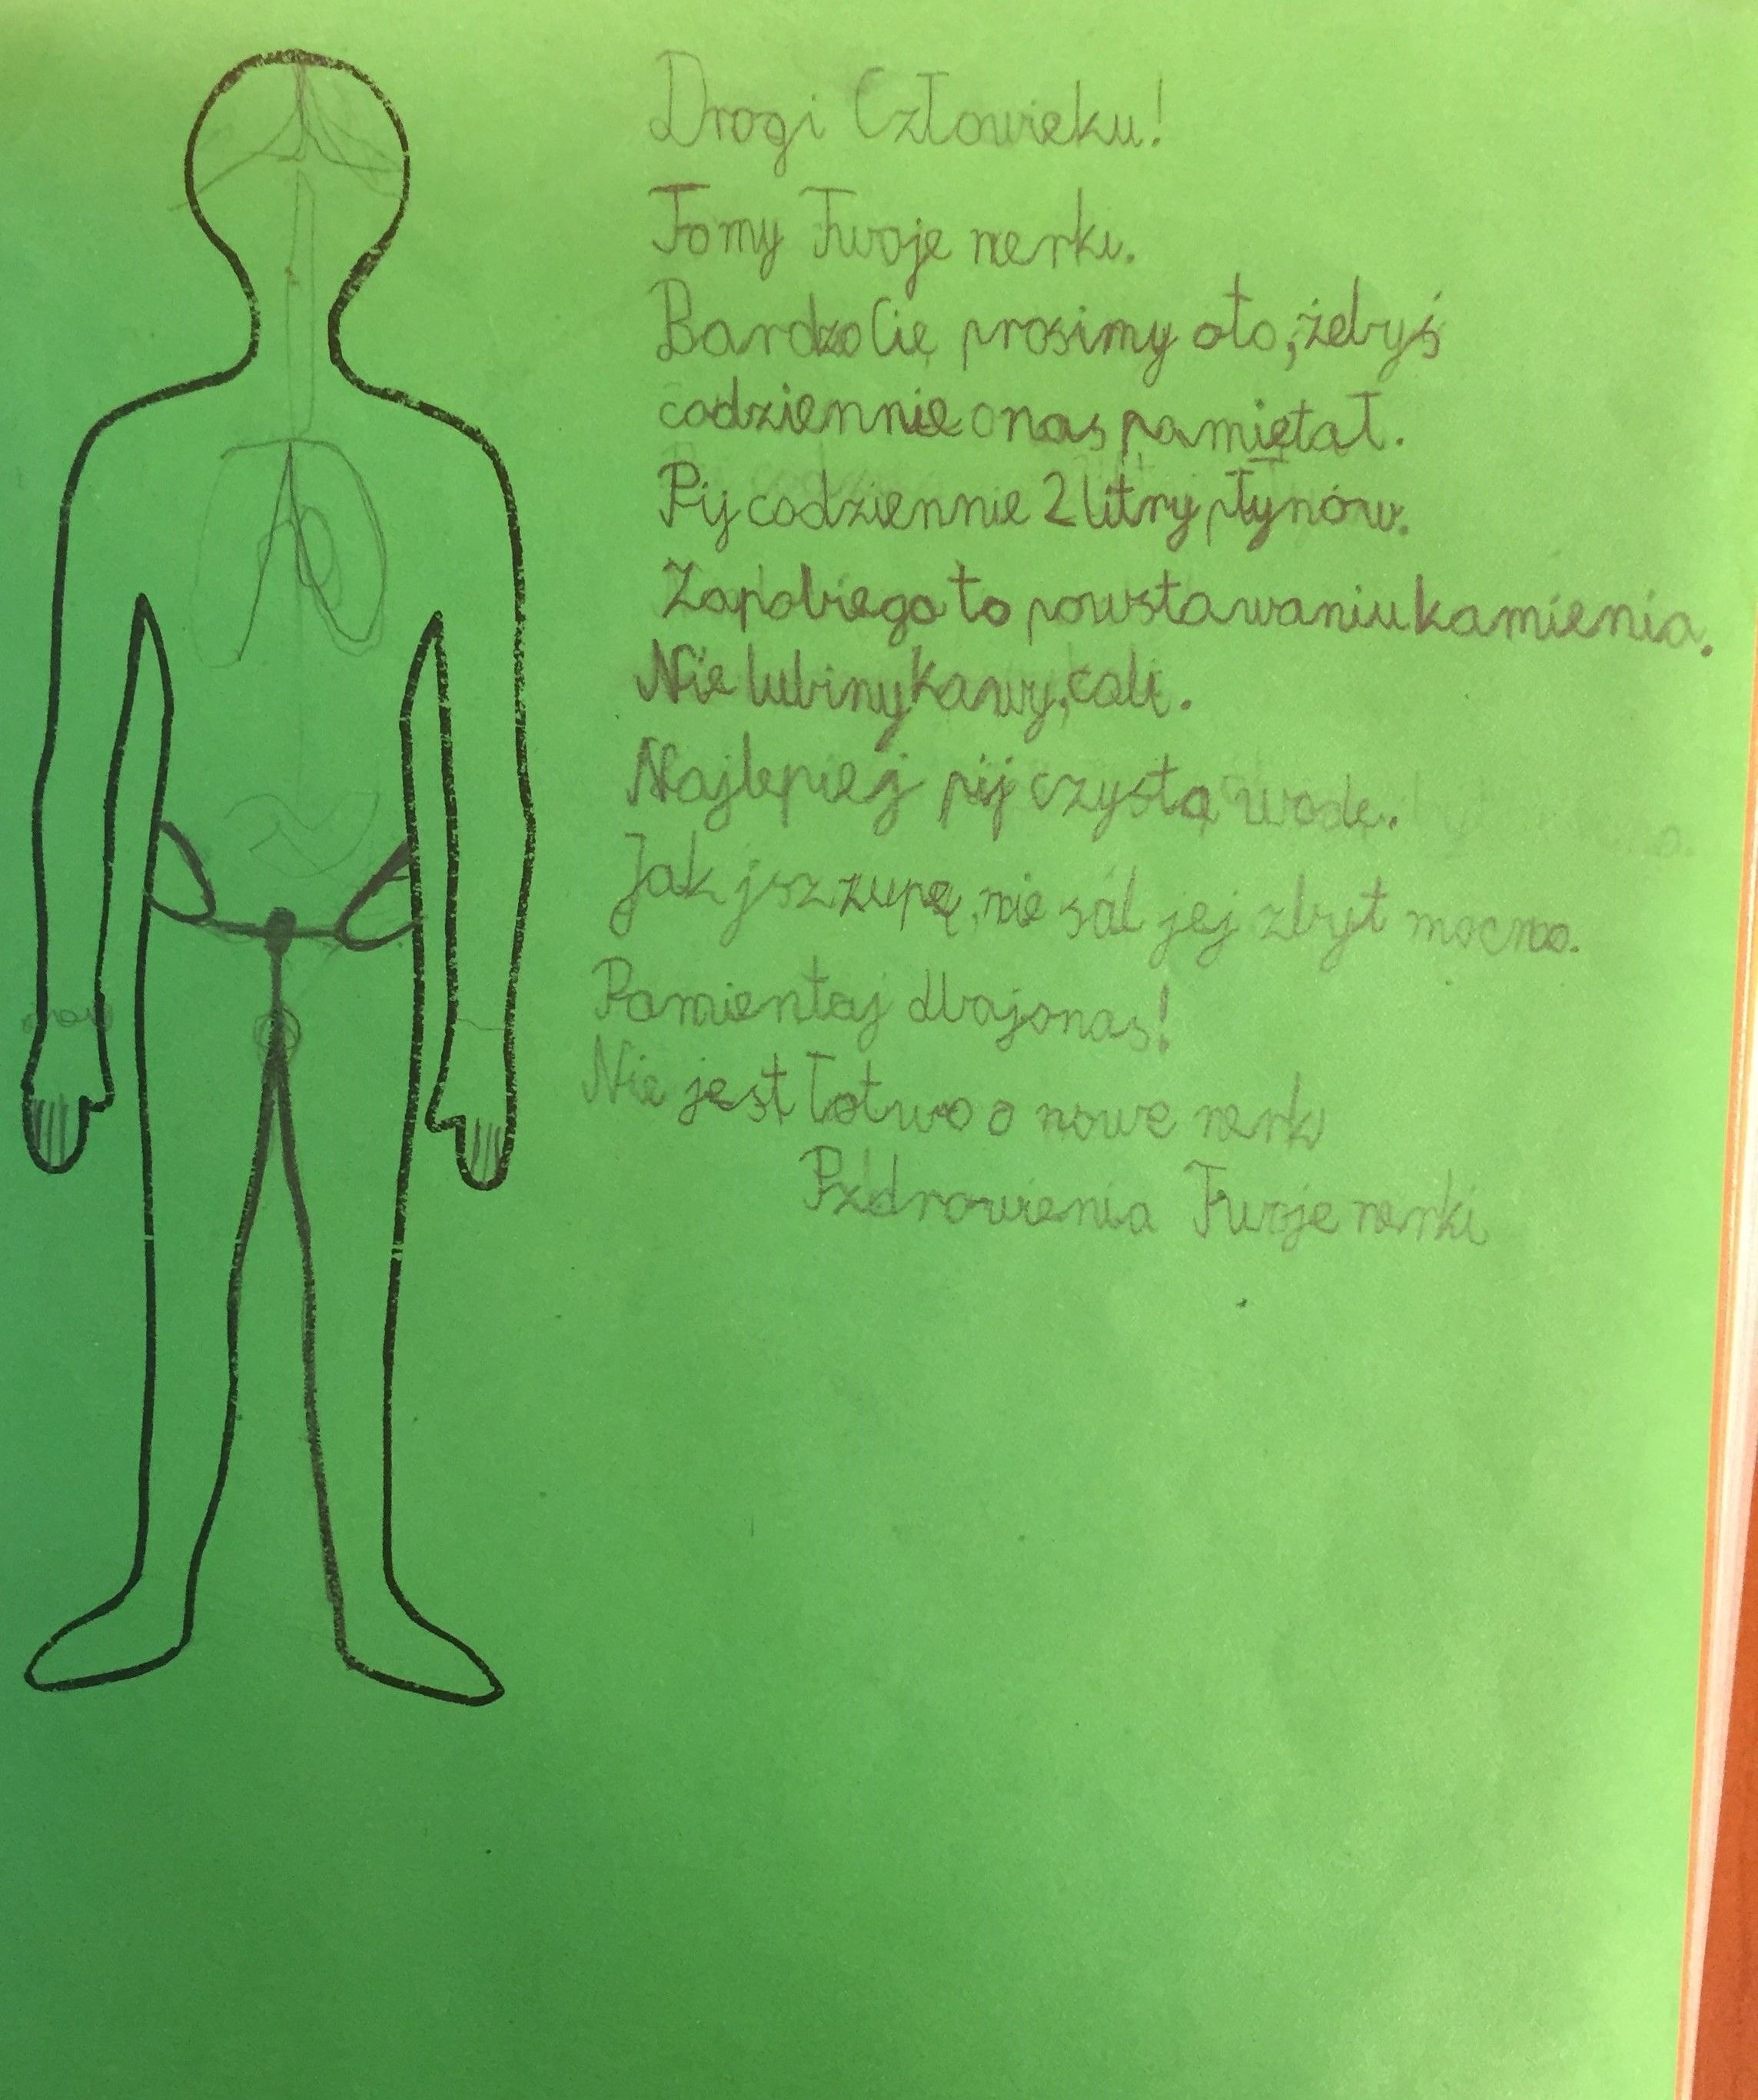 Drogi Człowieku!
To my Twoje nerki.
Bardzo Cię prosimy oto, żebyś
codziennie o nas pamiętał.
Pij codziennie 2 litry płynów.
Zapobiega to powstawaniu kamienia.
Nie lubimy kawy, coli.
Najlepiej pij czystą wodę.
Jak jsz zupę, nie sól jej zbyt mocno.
Pamientaj dbaj o nas!
Nie jest łatwo o nowe nerki
Pzdrowienia Twoje nerki